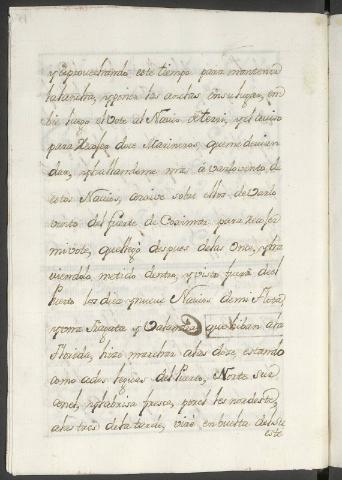 y aprovechando este tiempo para mantener
la lancha, y poner las anclas en su lugar, em
bie luego el vote al Navio de tersi, y el
para recoger doce Marineros que me devian
dar, y hallandome mas á varlovento de
estos Navios, corrive sobre ellos de varlo
vento del fuerte de Cogimar para recoger
mi vote, que llegó despues de las Once, y ha
viendolo metido dentro, y visto fuera del
Puerto los diez y nueve Navios de mi Flota,
y una Fragata, y Valandra que hiban ala
Florida, hizo marchar alas doce, estando
como ados leguas del Puerto, Norte Sur
con el, y la brisa fresca, por el les nordeste,
alas tres de la tarde, viró en buelta del Su
este